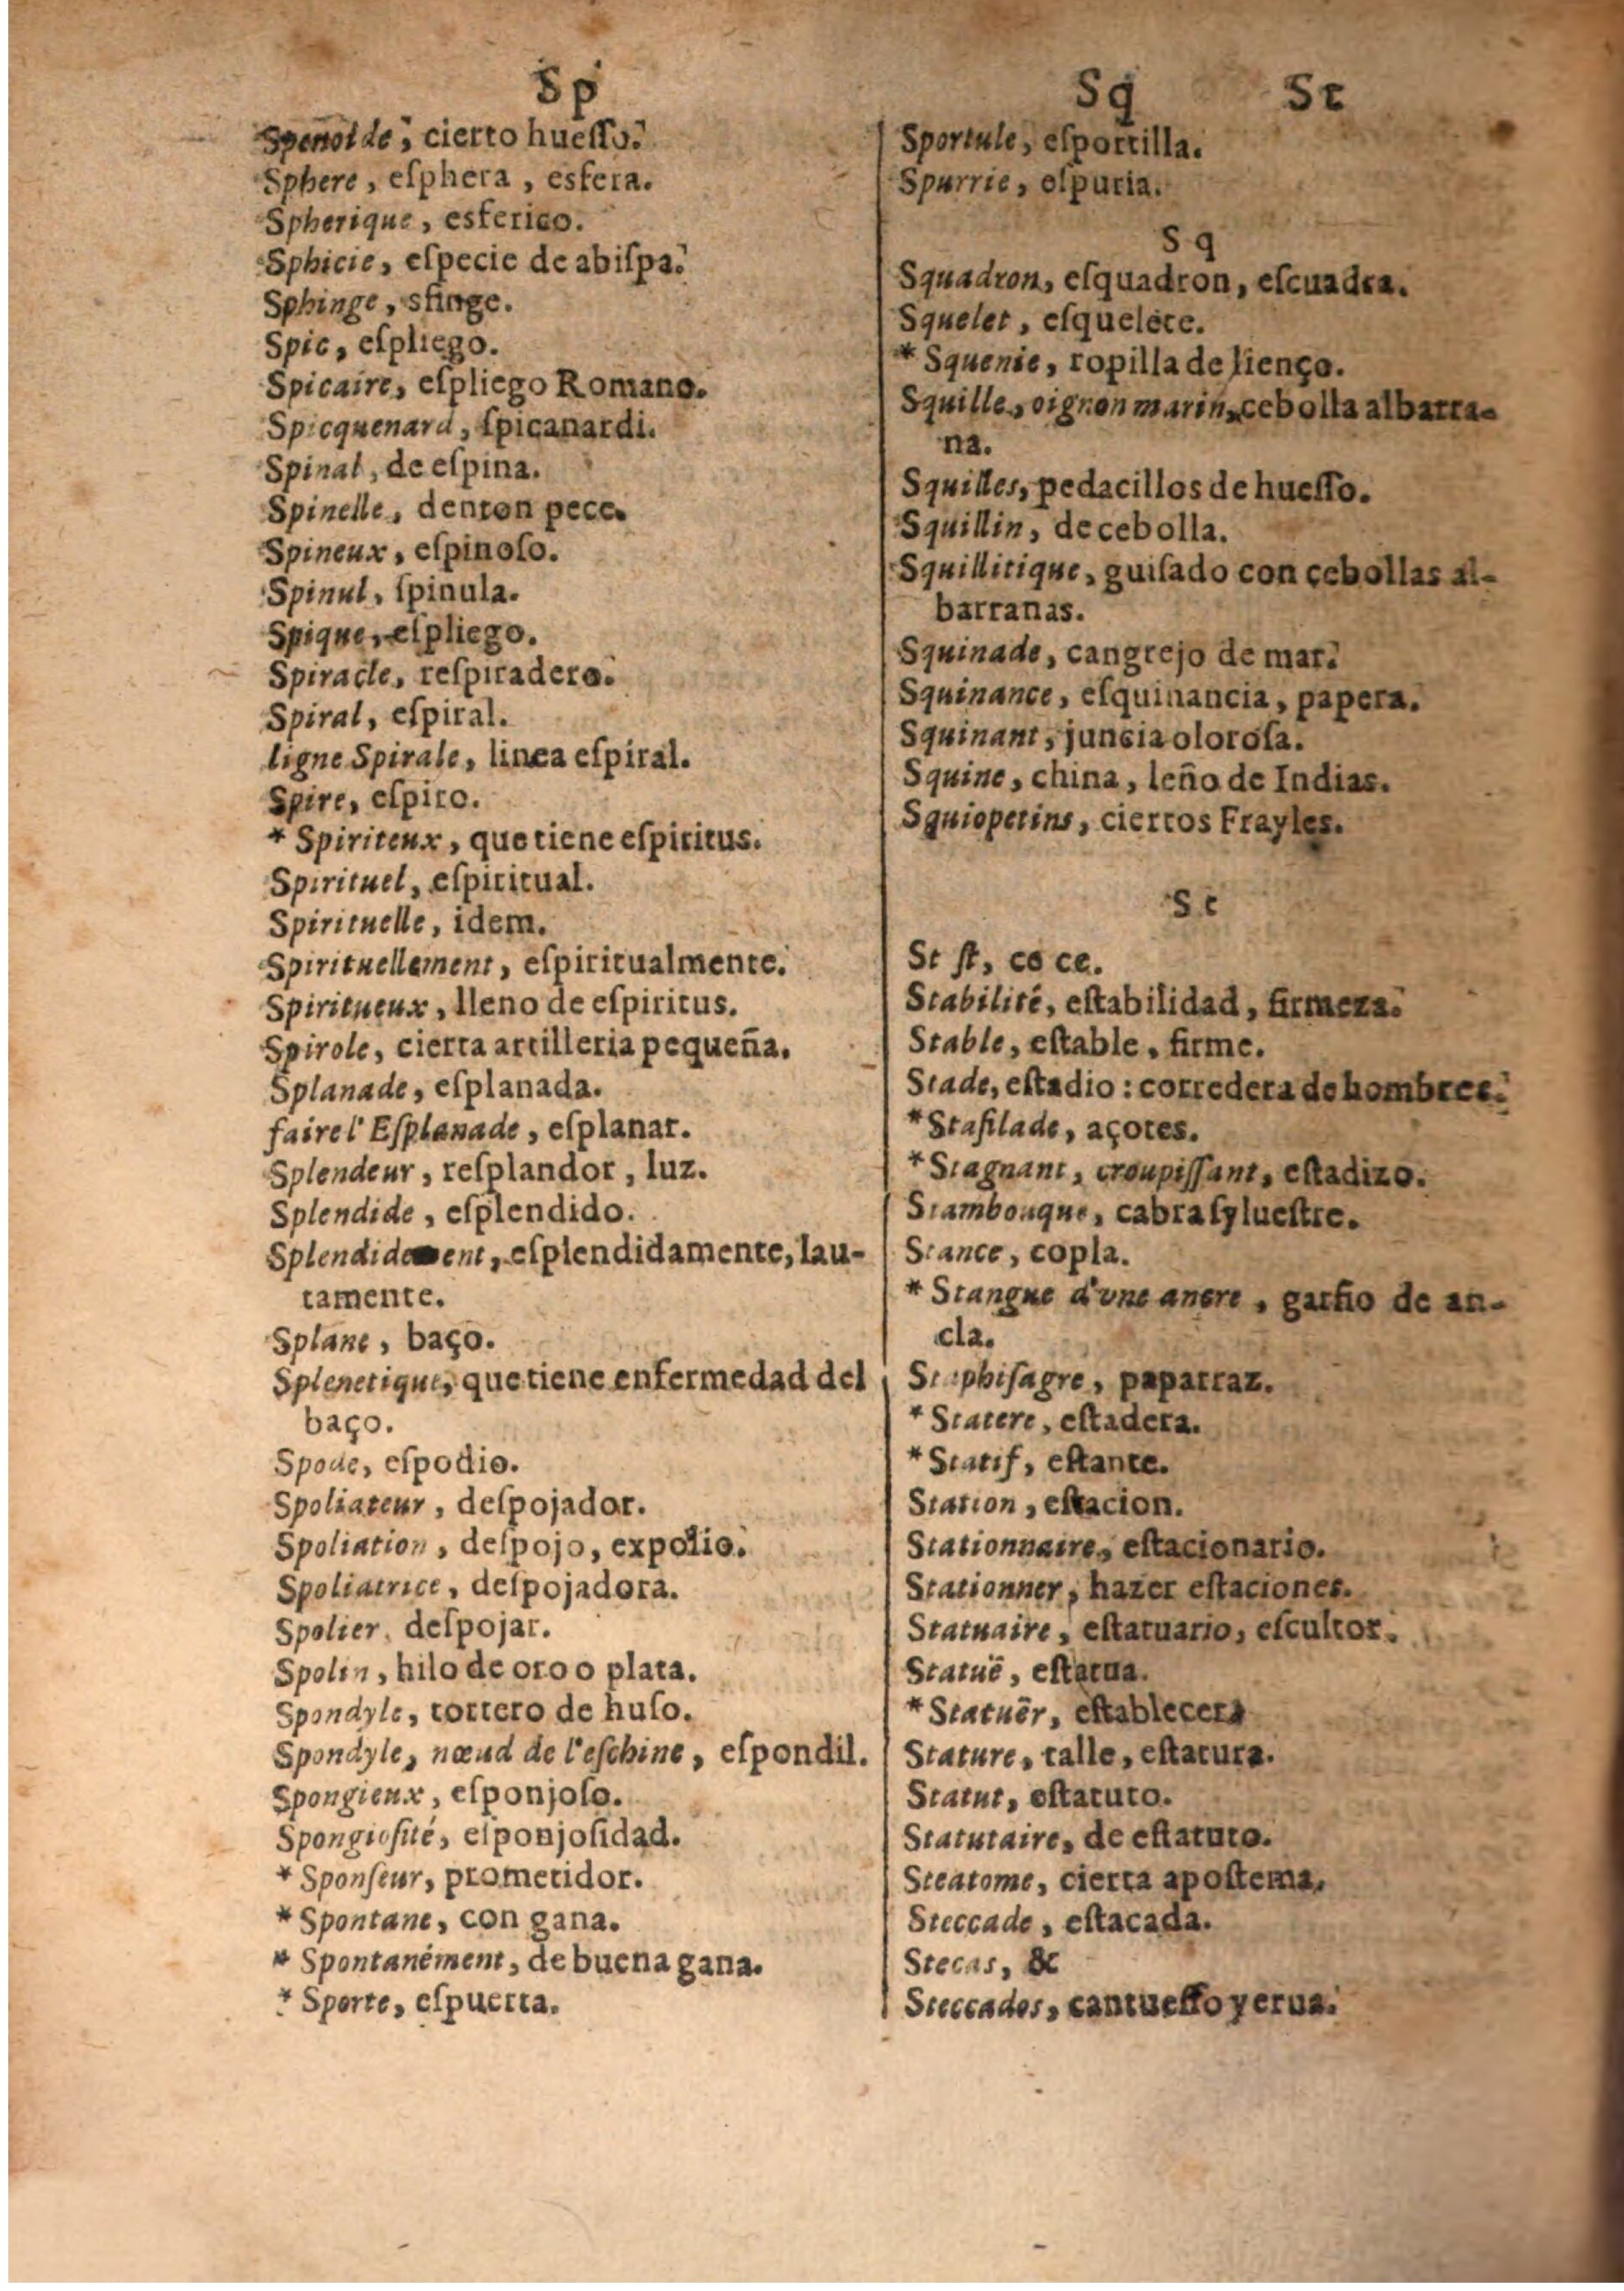 Sp
Spenoide, cierto hueſſo.
Sphere, eſphera, esfera.
Spherique, esferico.
Sphicie, eſpecie de abiſpa.
Sphinge, sfinge.
Spic, eſpliego.
Spicaire, eſpliego Romano.
Spicquenard, ſpicanardi.
Spinal, de eſpina.
Spinelle, denton pece.
Spineux, eſpinoſo.
Spinul, ſpinula.
Spique, eſpliego.
Spiracle, reſpiradero.
Spiral, eſpiral.
ligne Spirale, linea eſpiral.
Spire, eſpiro.
* Spiriteux, que tiene eſpiritus.
Spirituel, eſpiritual.
Spirituelle, idem.
Spirituellement, eſpiritualmente.
Spiritueux, lleno de eſpiritus.
Spirole, cierta artilleria pequeña.
Splanade, eſplanada.
faire l'Eſplanade, eſplanar.
Splendeur, reſplandor, luz.
Splendide, eſplendido.
Splendidement, eſplendidamente, lau-
tamente.
Splane, baço.
Splenetique, que tiene enfermedad del
baço.
Spode, eſpodio.
Spoliateur, deſpojador.
Spoliation, deſpojo, expolio.
Spoliatrice, deſpojadora.
Spolier, deſpojar.
Spolin, hilo de oro o plata.
Spondyle, tortero de huſo.
Spondyle, nœud de l'eſchine, eſpondil.
Spongieux, eſponjoſo.
Spongioſité, eſponjoſidad.
* Sponſeur, prometidor.
* Spontane, con gana.
* Spontanément, de buena gana.
* Sporte, eſpuerta.
Sq St
Sportule, eſportilla.
Spurrie, eſpuria.
Sq
Squadron, eſquadron, eſcuadra.
Squelet, eſquelete.
* Squenie, ropilla de lienço.
Squille, oignon marin, cebolla albarra-
na.
Squilles, pedacillos de hueſſo.
Squillin, de cebolla.
Squillitique, guiſado con çebollas al-
barranas.
Squinade, cangrejo de mar.
Squinance, eſquinancia, papera.
Squinant, juncia oloroſa.
Squine, china, leño de Indias.
Squiopetins, ciertos Frayles.
St
St ſt, ce ce.
Stabilité, eſtabilidad, firmeza.
Stable, eſtable, firme.
Stade, eſtadio: corredera de hombres.
*Stafilade, açotes.
*Stagnant, croupiſſant, eſtadizo.
Stambouque, cabra ſylueſtre.
Stance, copla.
* Stangue d'vne ancre, garfio de an-
cla.
Staphiſagre, paparraz.
* Statere, eſtadera.
*Statif, eſtante.
Station, eſtacion.
Stationnaire, eſtacionario.
Stationner, hazer eſtaciones.
Statuaire, eſtatuario, eſcultor.
Statuë, eſtatua.
*Statuër, eſtablecer.
Stature, talle, eſtatura.
Statut, eſtatuto.
Statutaire, de eſtatuto.
Steatome, cierta apoſtema.
Steccade, eſtacada.
Stecas, &c
Steccados, cantueſſo yerua.